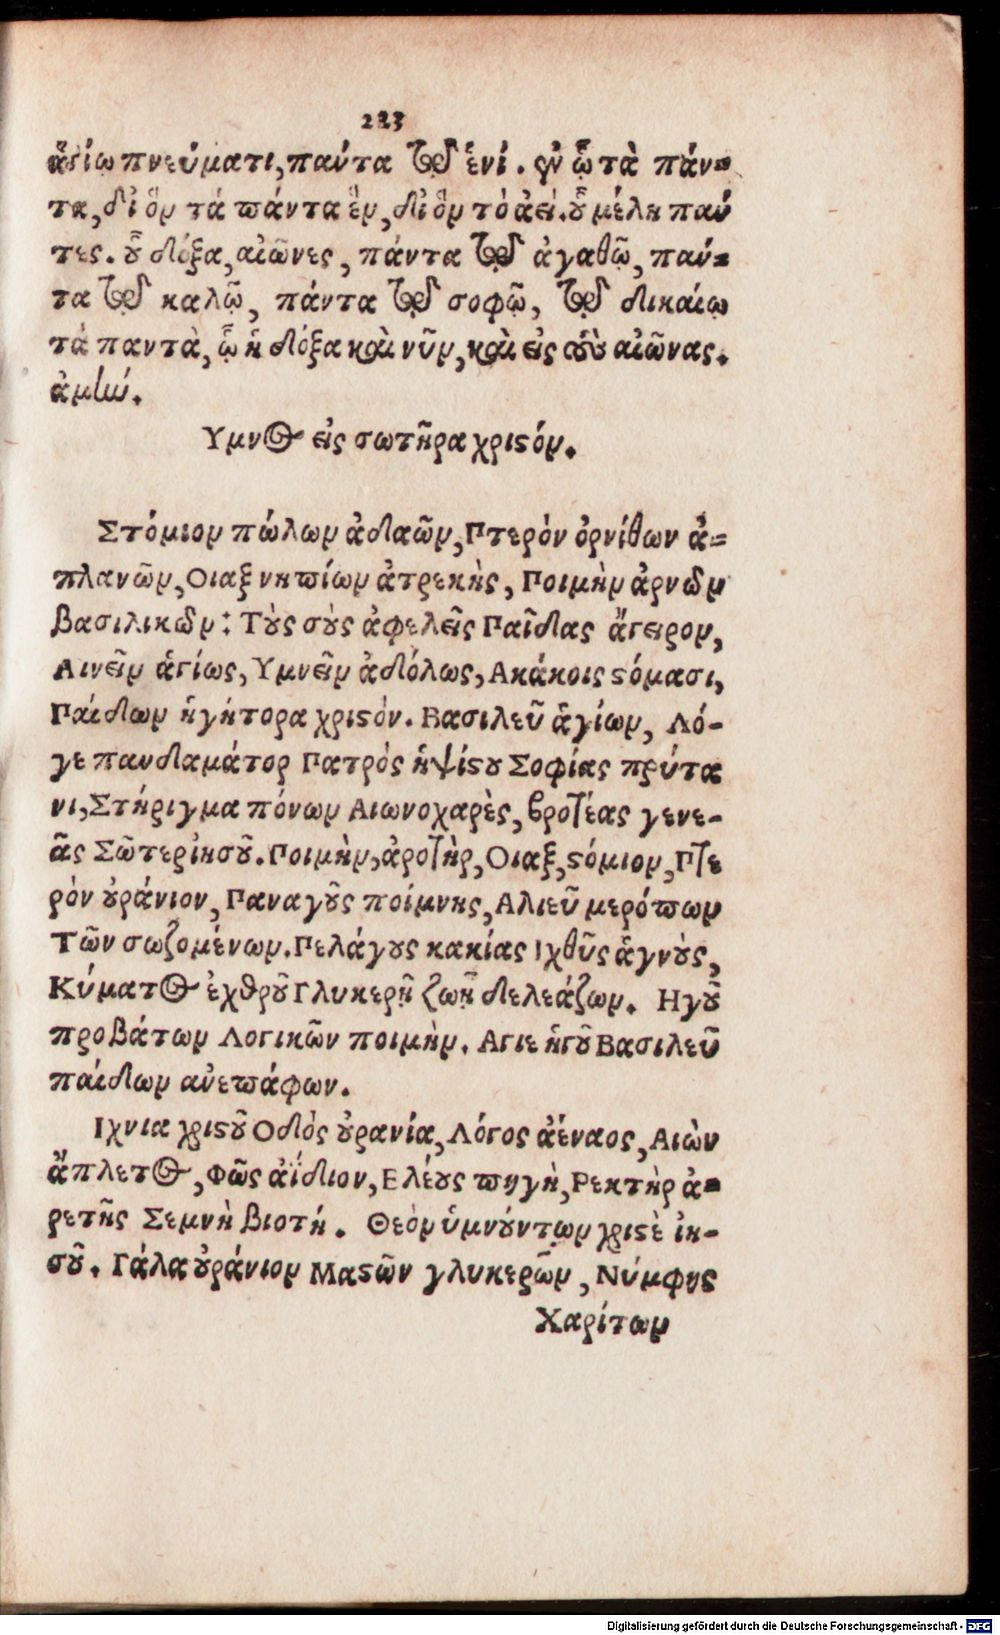 223
ἁγίῳ πνεύματι, πάντα τῷ ἑνί. ἐν ᾧ τὰ πάν-
τα, δι ὃν τά πάντα ἓν, δι ὃν τὸ ἀεί. οὗ μέλη πάν
τες. οὗ δόξα, αἰῶνες, πάντα τῷ ἀγαθῷ, πάν-
τα τῷ καλῷ, πάντα τῷ σοφῷ, τῷ δικαίῳ
τὰ παντὰ, ᾧ ἡ δόξα καὶ νῦν, καὶ εἰς τοὺς αἰῶνας.
ἀμήν.
Υμνος εἰς σωτῆρα χριστόν.
Στόμιον πώλων ἀδαῶν, Πτερὸν ὀρνίθων ἀ-
πλανῶν, Οιαξ νηπίων ἀτρεκὴς, Ποιμὴν ἀρνῶν
βασιλικῶν: Τοὺς σοὺς ἀφελεῖς Παῖδας ἄγειρον,
Αινεῖν ἁγίως, Υμνεῖν ἀδόλως, Ακάκοις στόμασι,
Παίδων ἡγήτορα χριστόν. Βασιλεῦ ἁγίων, Λό-
γε πανδαμάτορ Πατρὸς ἡψίστου Σοφίας πρύτα
νι, Στήριγμα πόνων Αιωνοχαρὲς, βροτέας γενε-
ᾶς Σῶτερ ἰησοῦ. Ποιμὴν, ἀροτὴρ, Οιαξ, στόμιον, Πτε
ρὸν οὐράνιον, Παναγοῦς ποίμνης, Αλιεῦ μερόπων
Τῶν σωζομένων. Πελάγους κακίας Ιχθῦς ἁγνοὺς,
Κύματος ἐχθροῦ Γλυκερῇ ζωῇ δελεάζων. Ηγοῦ
προβάτων Λογικῶν ποιμὴν. Αγιε ἡγοῦ Βασιλεῦ
παίδων ἀνεπάφων.
Ιχνια χριστοῦ Οδὸς οὐρανία, Λόγος ἀέναος, Αιὼν
ἄπλετος, Φῶς ἀΐδιον, Ελέους πηγὴ, Ρεκτὴρ ἀ-
ρετῆς Σεμνὴ βιοτή. Θεὸν ὑμνούντων χριστὲ ἰη-
σοῦ. Γάλα οὐράνιον Μαστῶν γλυκερῶν, Νύμφης
Χαρίτων
Digitalisierung gefördert durch die Deutsche Forschungsgemeinschaft - DFG